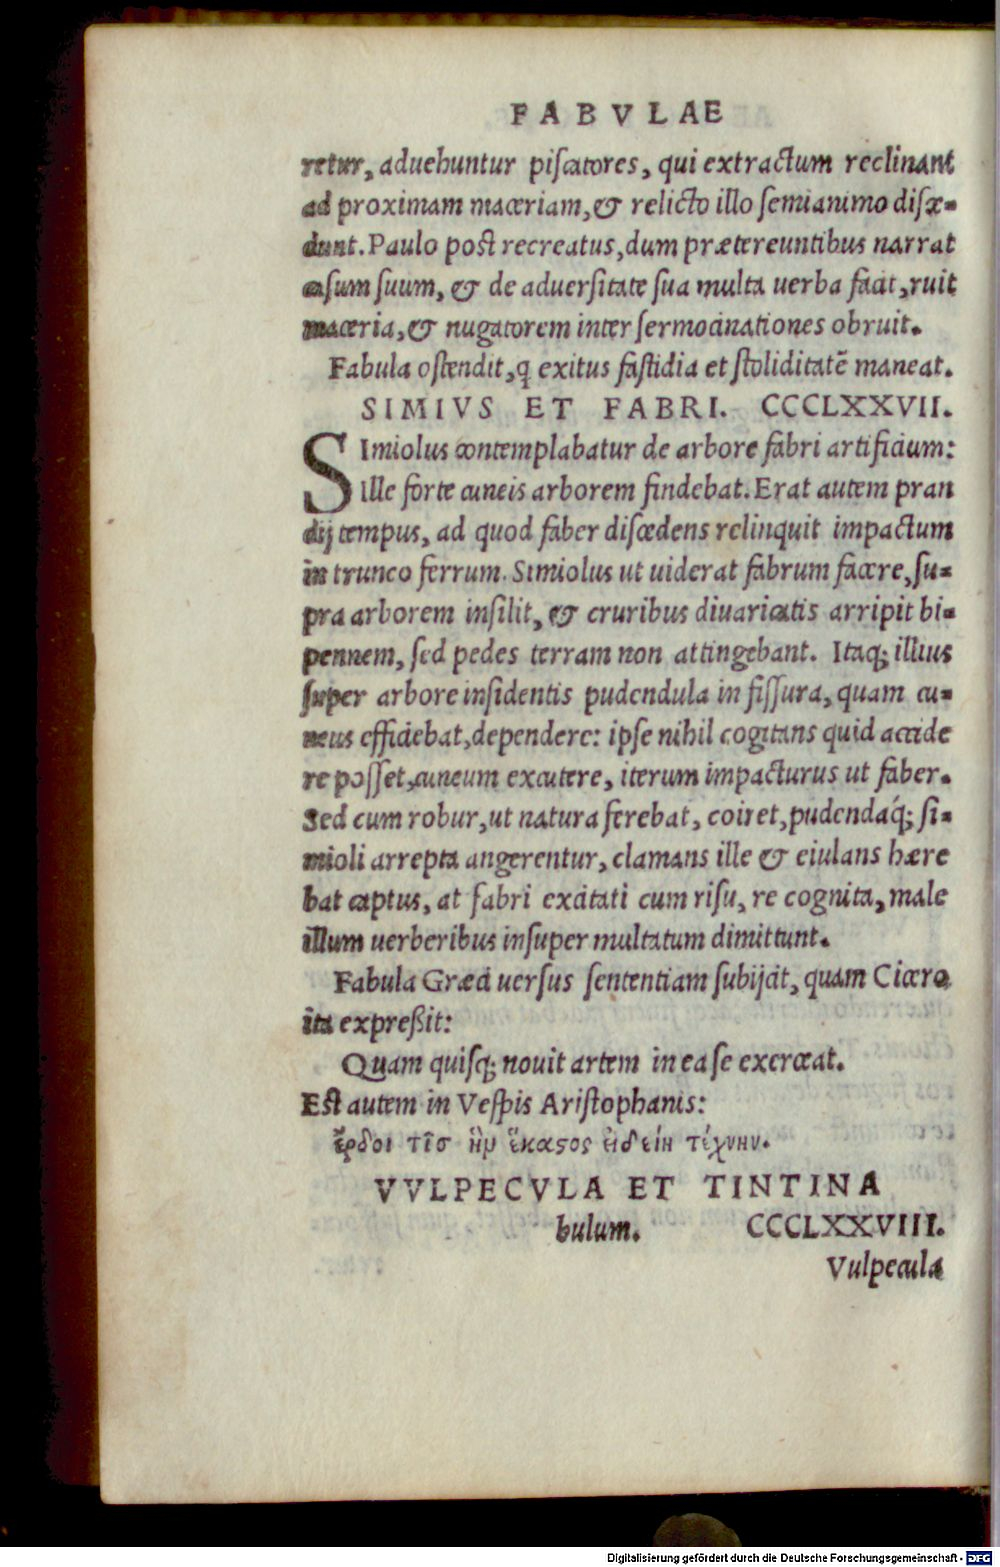 FABVLAE
retur, aduehuntur piſcatores, qui extractum reclinant
ad proximam maceriam, & relicto illo ſemianimo diſce-
dunt. Paulo poſt recreatus, dum prætereuntibus narrat
caſum ſuum, & de aduerſitate ſua multa uerba facit, ruit
maceria, & nugatorem inter ſermocinationes obruit.
Fabula oſtendit, ꝙ exitus faſtidia et ſtoliditatē maneat.
SIMIVS ET FABRI. CCCLXXVII.
SImiolus contemplabatur de arbore fabri artificium:
ille forte cuneis arborem findebat. Erat autem pran
dij tempus, ad quod faber diſcedens relinquit impactum
in trunco ferrum. Simiolus ut uiderat fabrum facere, ſu-
pra arborem inſilit, & cruribus diuaricatis arripit bi-
pennem, ſed pedes terram non attingebant. Itaq; illius
ſuper arbore inſidentis pudendula in fiſſura, quam cu-
neus efficiebat, dependere: ipſe nihil cogitans quid accide
re poſſet, cuneum excutere, iterum impacturus ut faber.
Sed cum robur, ut natura ferebat, coiret, pudendaq́; ſi-
mioli arrepta angerentur, clamans ille & eiulans hære
bat captus, at fabri excitati cum riſu, re cognita, male
illum uerberibus inſuper multatum dimittunt.
Fabula Græci uerſus ſententiam ſubijcit, quam Cicero
ita expreßit:
Quam quiſq; nouit artem in ea ſe exerceat.
Eſt autem in Veſpis Ariſtophanis:
ἔρδοι τὶσ ἣν ἕκαϛος εἰδείη τέχνην.
VVLPECVLA ET TINTINA
bulum. CCCLXXVIII.
Vulpecula
Digitalisierung gefördert durch die Deutsche Forschungsgemeinschaft - DFG